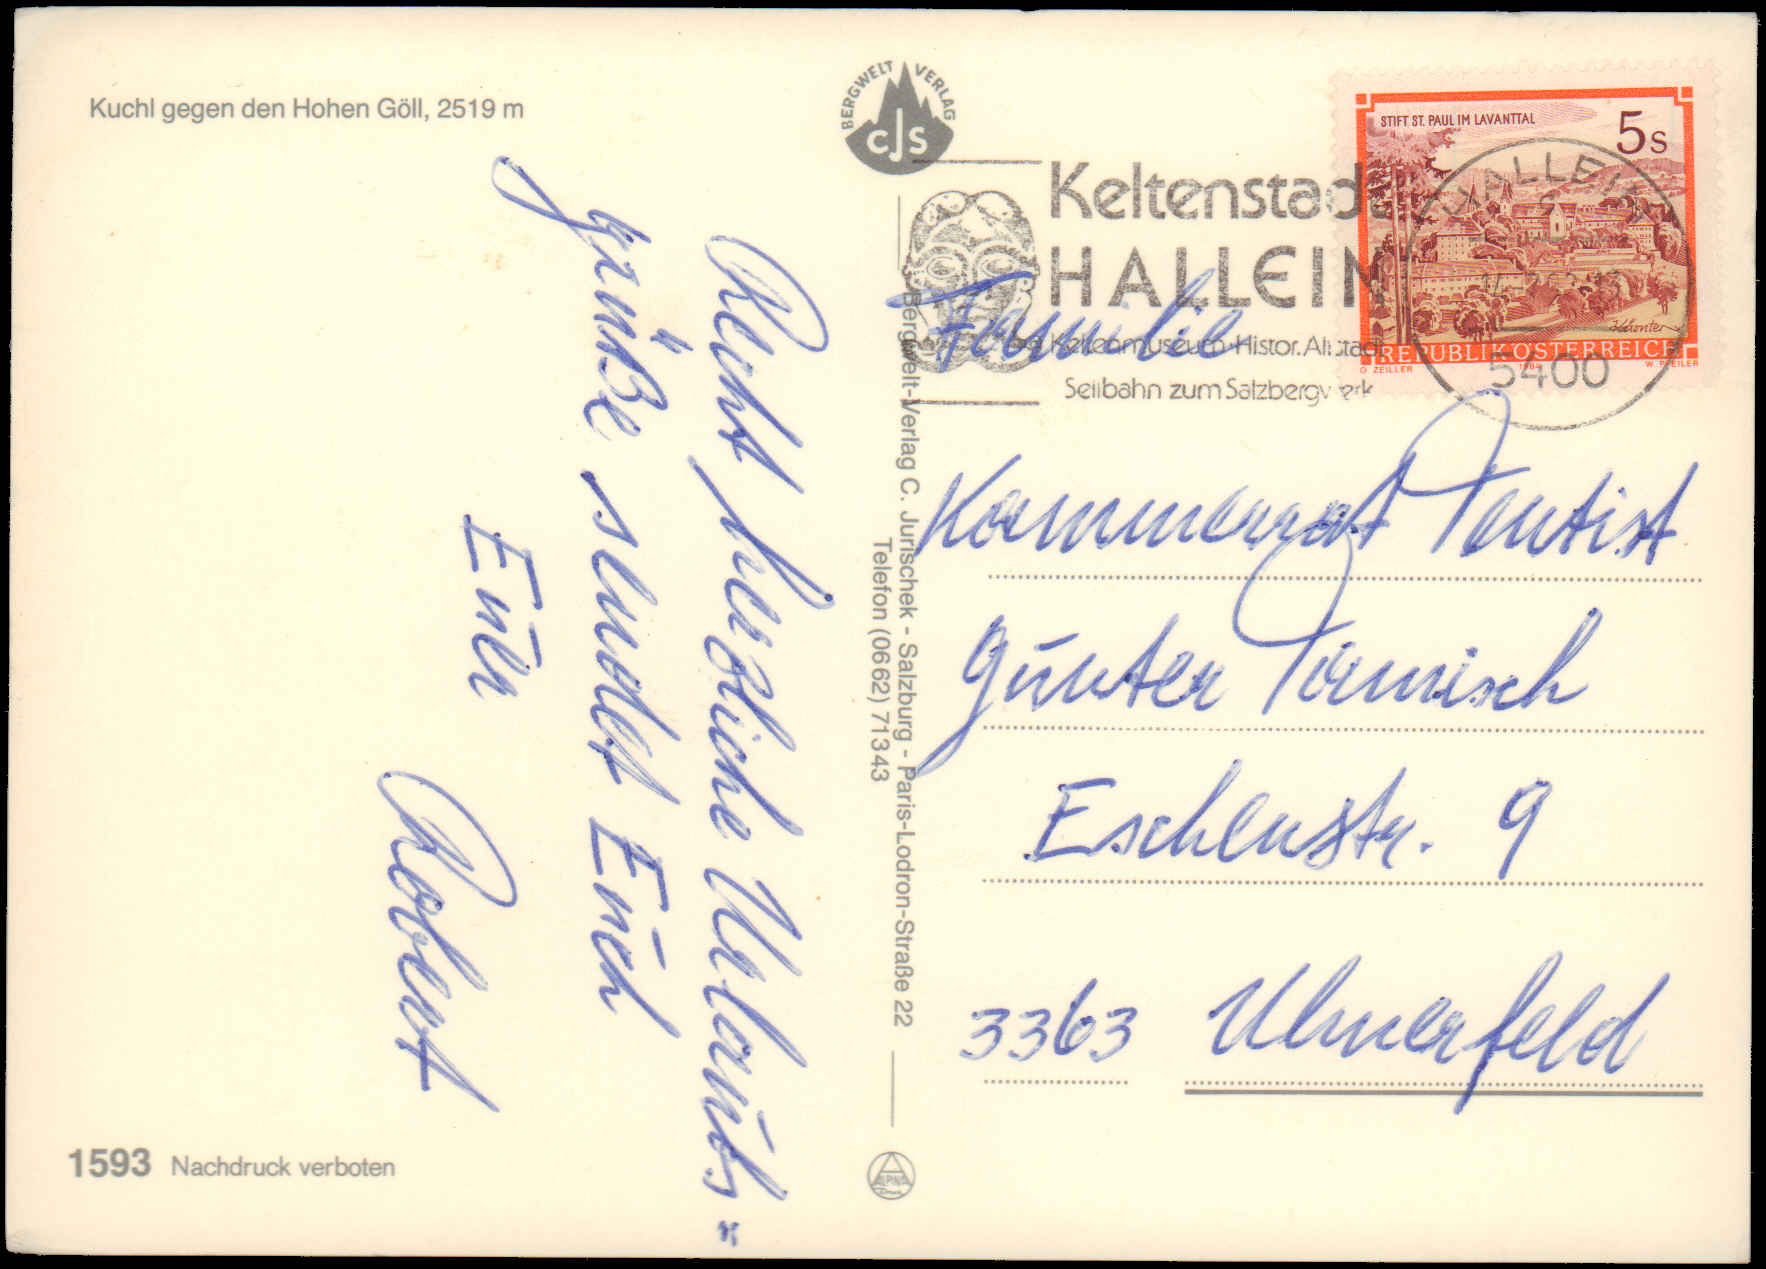 Kuchl gegen den Hohen Göll, 2519 m
BERGWELT VERLAG
CJS
Recht herzliche Urlaubs=
grüße sendet Euch
Euer
Robert
1593 Nachdruck verboten
Bergwelt-Verlag C. Jurischek - Salzburg - Paris-Lodron-Straße 22
Telefon (0662) 71343
ALPINA
Keltenstadt
HALLEIN
Keltenmuseum·Histor.Altstadt
Seilbahn zum Salzbergwerk
STIFT ST. PAUL IM LAVANTTAL
5 S
REPUBLIK ÖSTERREICH
O ZEILLER 1984 W PFEILER
HALLEIN
5400
Familie
Kommerrat Dentist
Günter
Eschenstr. 9
3363 Ulmerfeld